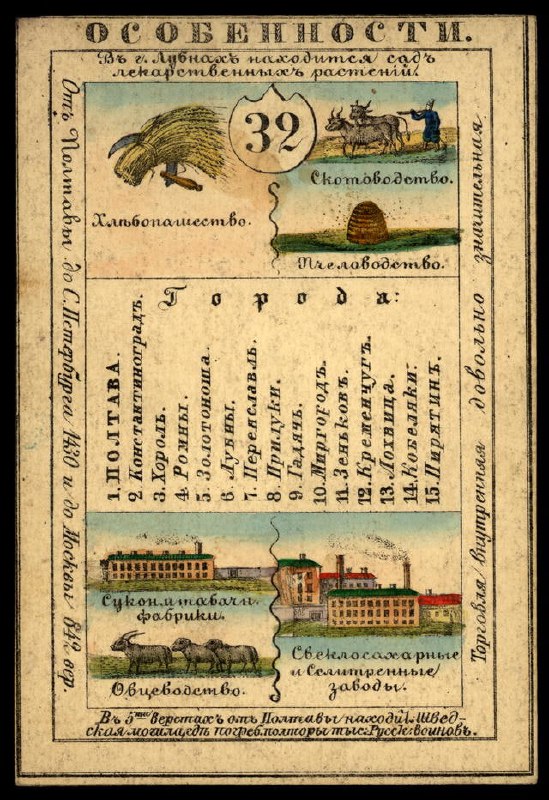 ОСОБЕННОСТИ.
Въ г. Лубнахъ находится садъ
лекарственныхъ растеній.
Отъ Полтавы до С. Петербурга 1430 и до Москвы 842 вер.
32
Хлѣбопашество.
Скотоводство.
Пчеловодство.
Города:
1. ПОЛТАВА.
2 Константиноградъ.
3. Хороль.
4. Ромны.
5. Золотоноша.
6. Лубны.
7. Переяславль.
8. Прилуки.
9. Гадячь.
10. Миргородъ.
11. Зеньковъ.
12. Кременчугъ.
13. Лохвица.
14. Кобеляки.
15. Пирятинъ.
Сукон. и табачн.
фабрики.
Овцеводство.
Свеклосахарные
и Селитренные
заводы.
Торговля внутренняя довольно значительная
Въ 5ти верстахъ отъ Полтавы находит. Швед-
ская могила, гдѣ погреб. полторы тыс: Русск: воиновъ.